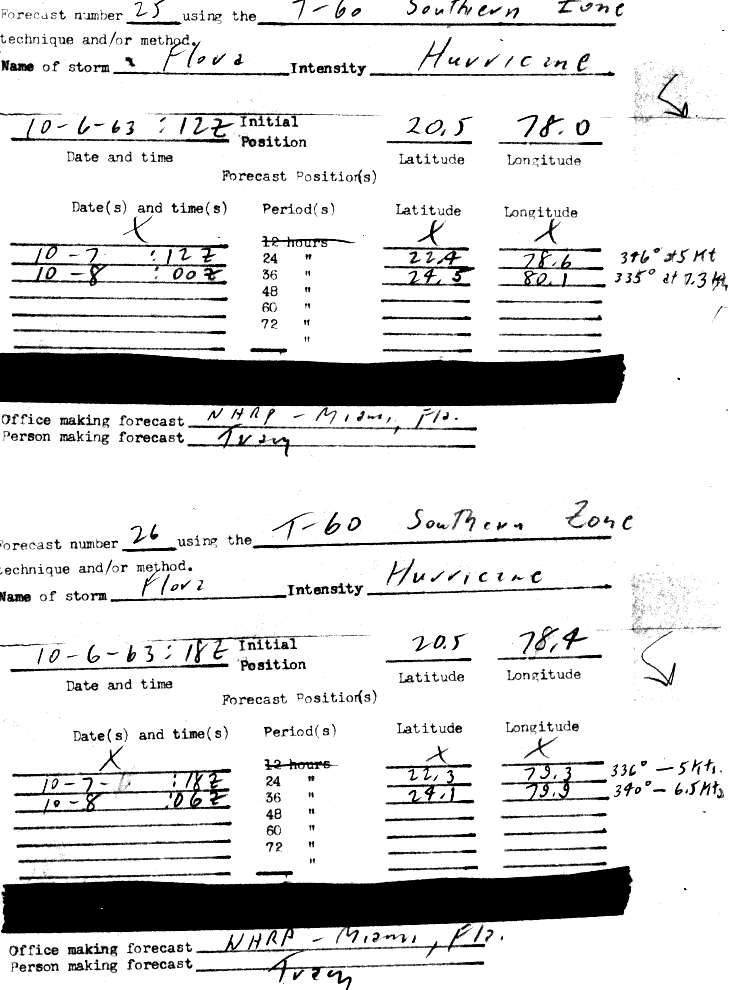 Forecast number 25 using the T-60 Southern Zone
technique and/or method.
Name of storm Flora Intensity Hurricane
10-6-63 : 12Z Initial Position 20.5 78.0
Date and time Latitude Longitude
Forecast Position(s)
Date(s) and time(s) Period(s) Latitude Longitude
X 12 hours X X
10-7 : 12Z 24 " 22.4 78.6 346° at 5 Kt
10-8 : 00Z 36 " 24.5 80.1 335° at 7.3 Kt
48 "
60 "
72 "
"
Office making forecast NHRP - Miami, Fla.
Person making forecast
Forecast number 26 using the T-60 Southern Zone
technique and/or method.
Name of storm Flora Intensity Hurricane
10-6-63 : 18Z Initial Position 20.5 78.4
Date and time Latitude Longitude
Forecast Position(s)
Date(s) and time(s) Period(s) Latitude Longitude
X 12 hours X X
10-7- : 18Z 24 " 22.3 79.3 336° - 5 Kts.
10-8 : 06Z 36 " 24.1 79.9 340° - 6.5 Kts
48 "
60 "
72 "
"
Office making forecast NHRP - Miami, Fla.
Person making forecast